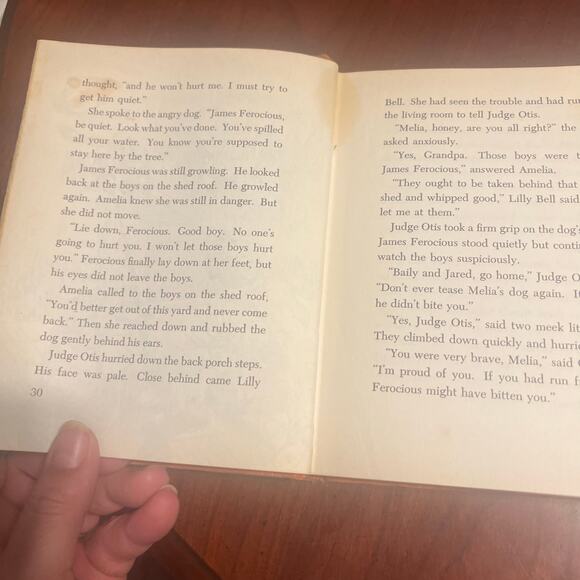 thought, "and he won't hurt me. I must try to
get him quiet."
She spoke to the angry dog. "James Ferocious,
be quiet. Look what you've done. You've spilled
all your water. You know you're supposed to
stay here by the tree."
James Ferocious was still growling. He looked
back at the boys on the shed roof. He growled
again. Amelia knew she was still in danger. But
she did not move.
"Lie down, Ferocious. Good boy. No one's
going to hurt you. I won't let those boys hurt
you." Ferocious finally lay down at her feet, but
his eyes did not leave the boys.
Amelia called to the boys on the shed roof,
"You'd better get out of this yard and never come
back." Then she reached down and rubbed the
dog gently behind his ears.
Judge Otis hurried down the back porch steps.
His face was pale. Close behind came Lilly
30
Bell. She had seen the trouble and had run
the living room to tell Judge Otis.
"Melia, honey, are you all right?" the
asked anxiously.
"Yes, Grandpa. Those boys were
James Ferocious," answered Amelia.
"They ought to be taken behind that
shed and whipped good," Lilly Bell said
let me at them."
Judge Otis took a firm grip on the dog's
James Ferocious stood quietly but
watch the boys suspiciously.
"Baily and Jared, go home," Judge
"Don't ever tease Melia's dog again.
he didn't bite you."
"Yes, Judge Otis," said two meek
They climbed down quickly and
"You were very brave, Melia," said
"I'm proud of you. If you had run
Ferocious might have bitten you."